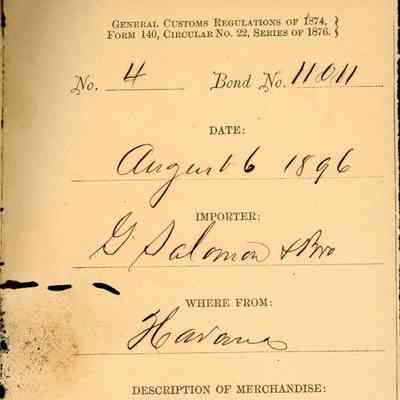 GENERAL CUSTOMS REGULATIONS OF 1874,
FORM 140, CIRCULAR NO. 22, SERIES OF 1876.
No. 4 Bond No. 11011
DATE:
August 6 1896
IMPORTER:
G. Salomon & Bro
WHERE FROM:
Havana
DESCRIPTION OF MERCHANDISE: